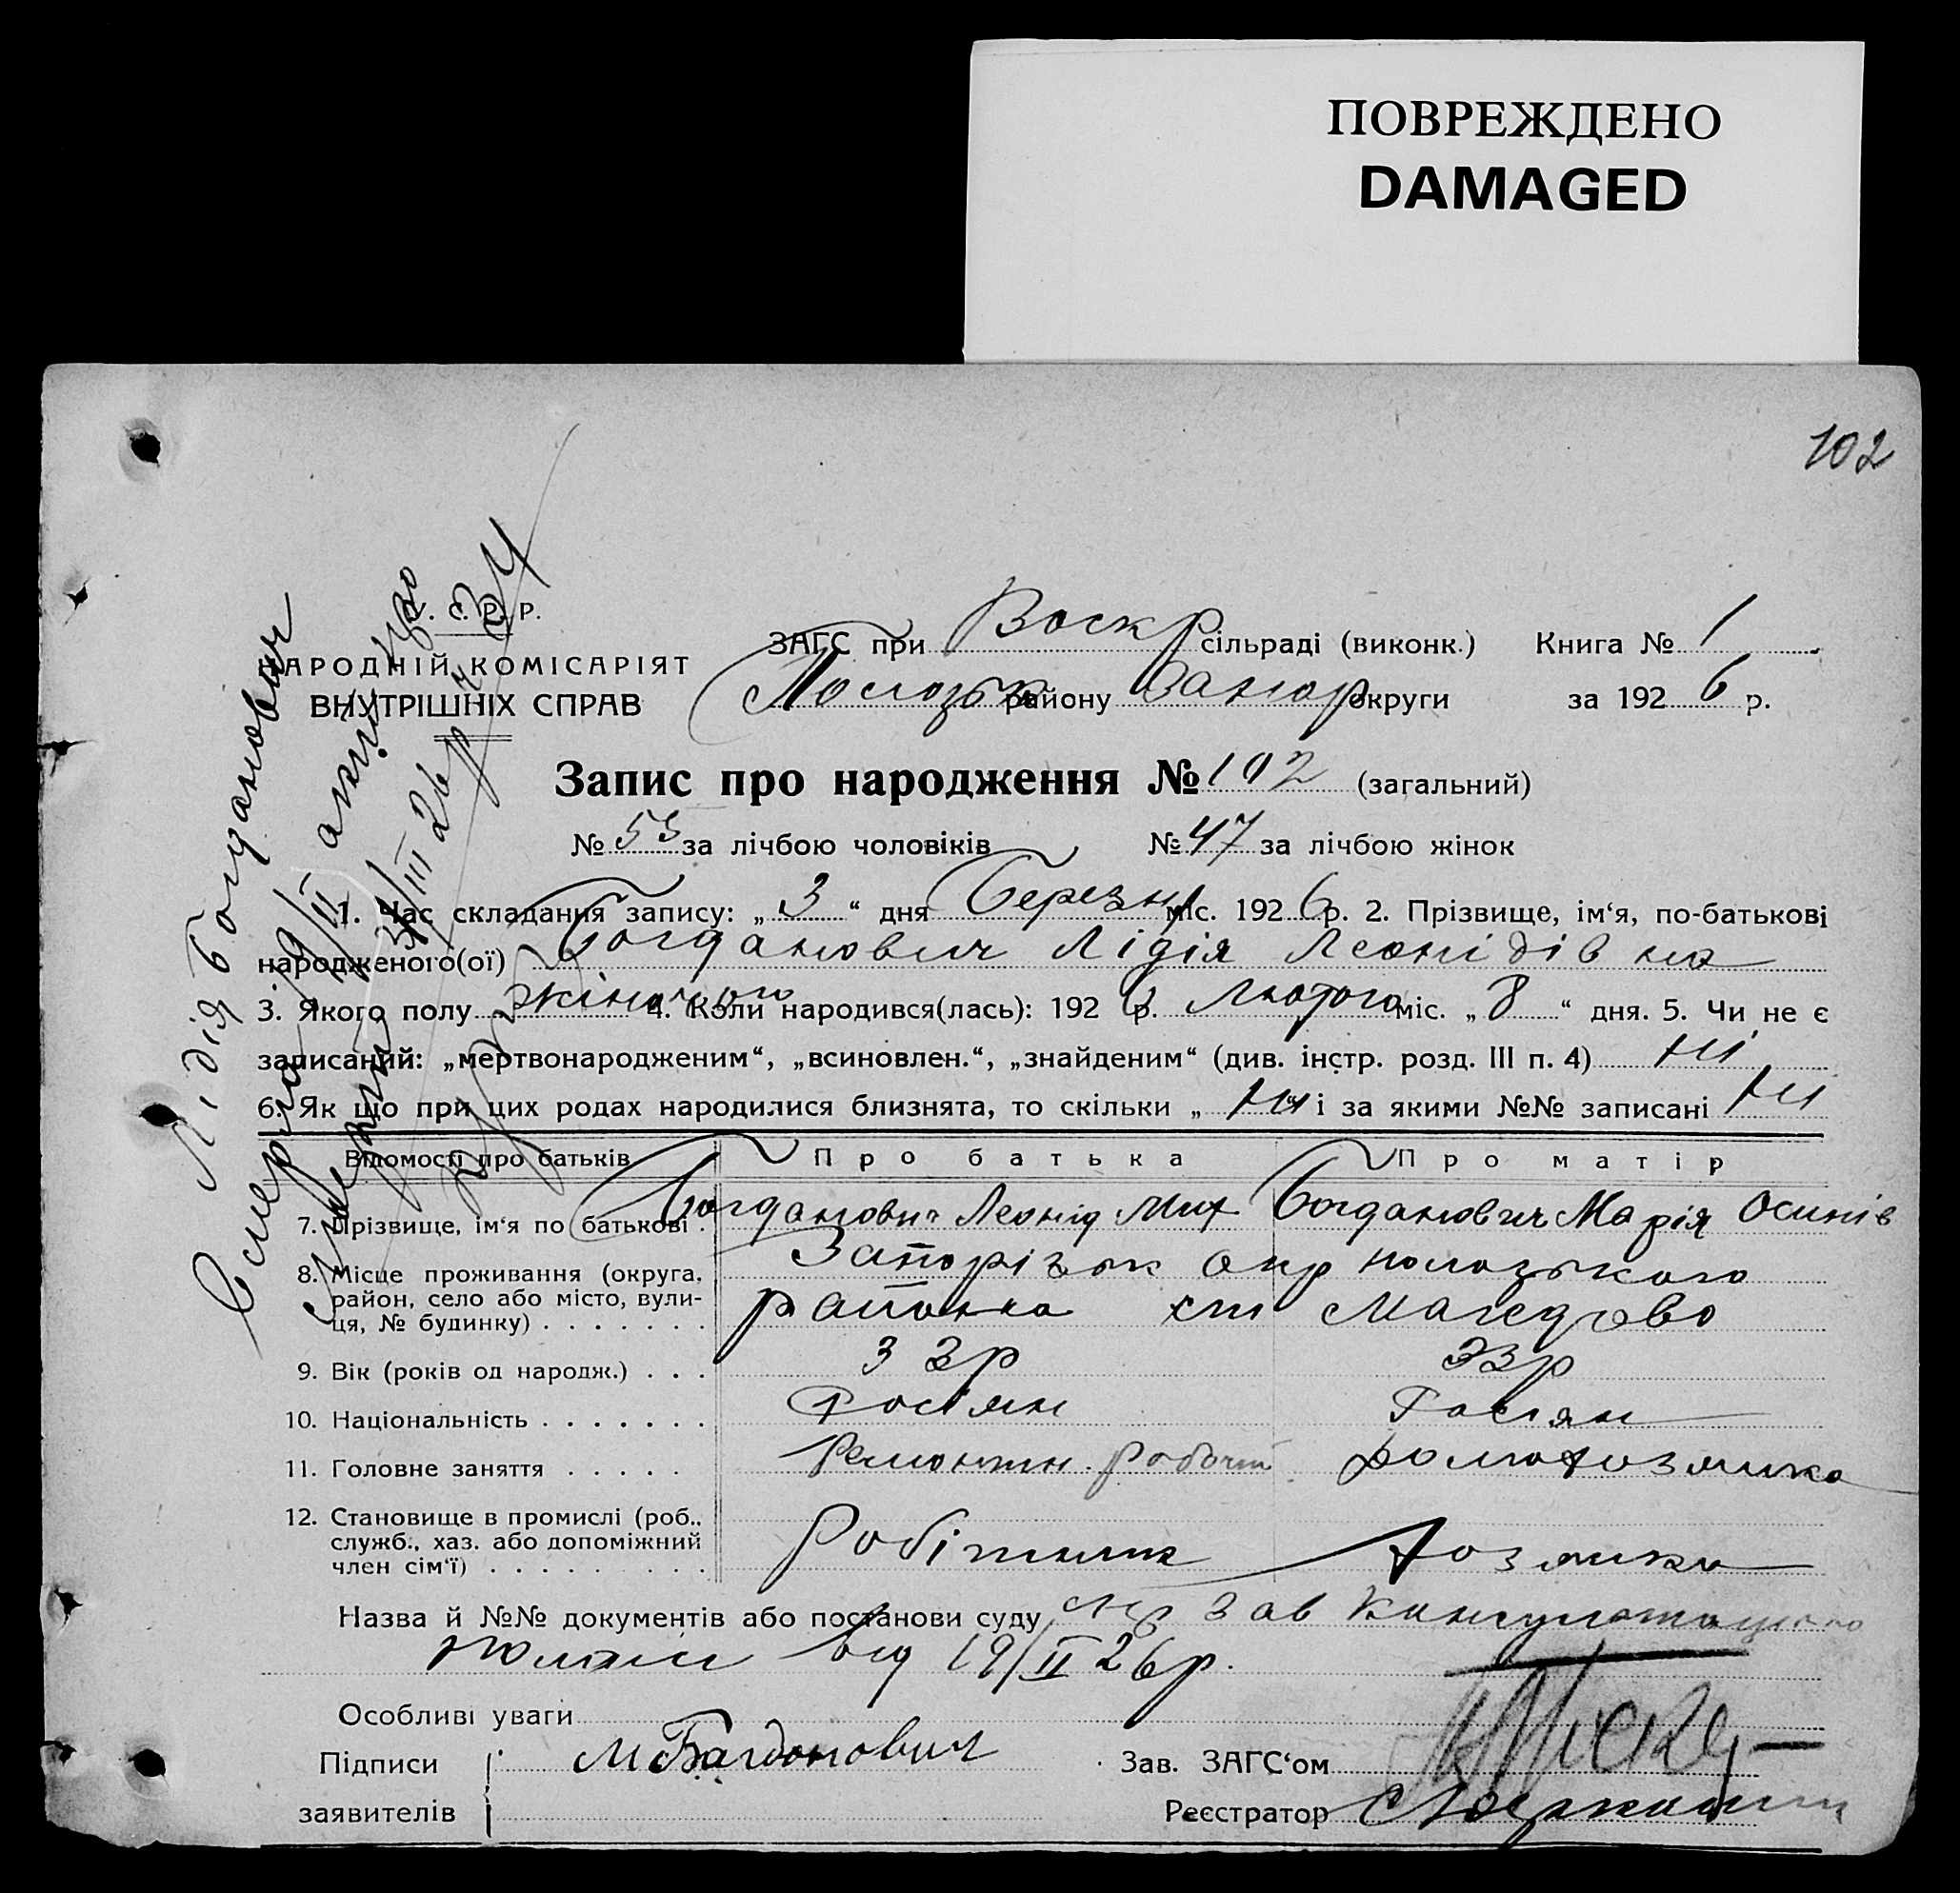 ПОВРЕЖДЕНО
DAMAGED
102
У. С. Р. Р.
НАРОДНІЙ КОМІСАРІЯТ
ВНУТРІШНІХ СПРАВ
ЗАГС при Воскр сільраді (виконк.) Книга № 1
Полозьк району Запор округи за 1926 р.
Запис про народження № 102 (загальний)
№ 55 за лічбою чоловіків № 47 за лічбою жінок
1. Час складання запису: „ 3 “ дня Березня міс. 1926 р. 2. Прізвище, ім‘я, по-батькові
народженого(ої) Богданович Лідія Леонідівна
3. Якого полу жіночого 4. Коли народився(лась): 1926 р. Лютого міс. „ 8 “ дня. 5. Чи не є
записаний: „мертвонародженим“, „всиновлен.“, „знайденим“ (див. інстр. розд. III п. 4) ні
6. Як що при цих родах народилися близнята, то скільки „ ні і за якими №№ записані ні
Відомості про батьків Про батька Про матір
7. Прізвище, ім‘я по батькові . Богданович Леонід Мих Богданович Марія Осипів
8. Місце проживання (округа, Запорізьк окр полозького
район, село або місто, вули- району ст Магедово
ця, № будинку) . . . . . . .
9. Вік (років од народж.) . . . 33р 33р
10. Національність . . . . . . . Росіян Росіян
11. Головне заняття . . . . . Ремонтн. робочий домохозяйка
12. Становище в промислі (роб.,
служб., хаз. або допоміжний
член сім‘ї) . . . . . . . . . Робітник хозяйка
Назва й №№ документів або постанови суду зав Консультацією
від 19/II 26р.
Особливі уваги
Підписи М Багданович Зав. ЗАГС‘ом
заявителів Реєстратор
Лідія Богданович
Смерла 19/II акт
3/III 26р ч 34